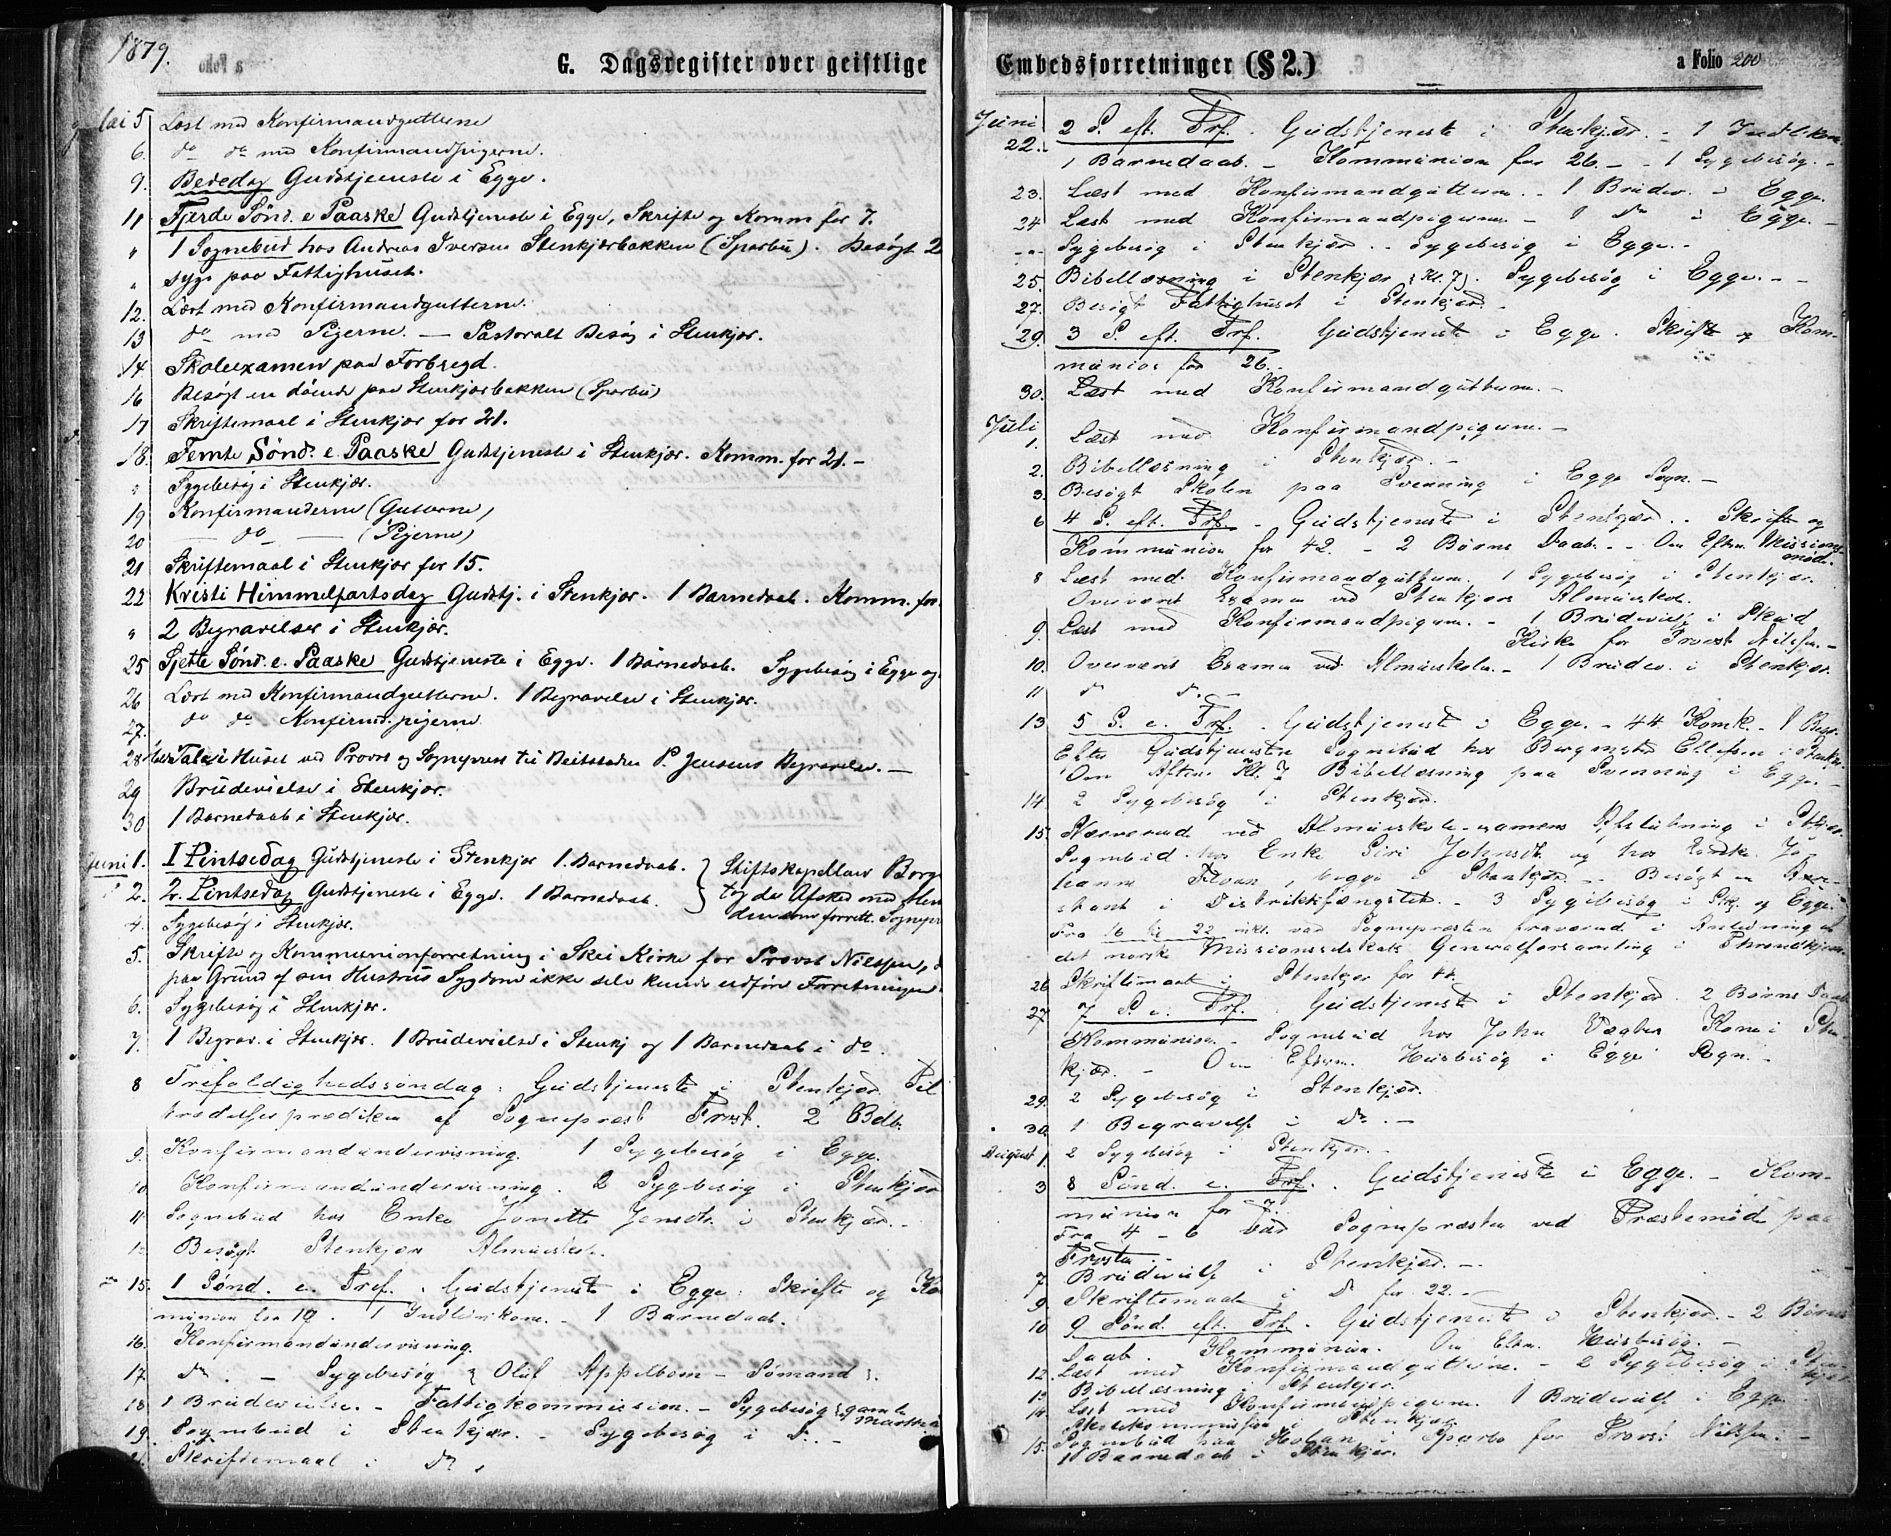 1879.
G. Dagsregister over geistlige
Mai 5 Læst med Konfirmandgutterne
6. do do med Konfirmandpigerne.
9. Bededag Gudstjeneste i Egge.
11 Fjerde Sønd. e Paaske Gudstjeneste i Egge, Skrifte og Komm for 7.
" 1 Sognebud hos Andreas Iversen Stenkjærbakken (Sparbu). Besøgt 2
" syge paa Fattighuset.
12. Læst med Konfirmandgutterne.
13 do med Pigerne. — Pastoralt Besøg i Stenkjær.
14 Skoleexamen paa Forbregd.
16 Besøgt en døende paa Stenkjærbakken (Sparbu)
17 Skriftemaal i Stenkjær for 21.
18. Femte Sønd. e. Paaske Gudstjeneste i Stenkjær. Komm. for 21. –
" Sygebesøg i Stenkjær.
19 Konfirmanderne (Gutterne)
20 — do — (Pigerne)
21 Skriftemaal i Stenkjær for 15.
22 Kristi Himmelfartsdag Gudstj. i Stenkjær. 1 Barnedaab. Komm. for
" 2 Begravelser i Stenkjær.
25 Sjette Sønd. e. Paaske Gudstjeneste i Egge. 1 Barnedaab. Sygebesøg i Egge og
26 Læst med Konfirmandgutterne. 1 Begravelse i Stenkjær.
27. do do Konfirmd. pigerne
28 Tale i Huset ved Provst og Sognepræst til Beitstaden P. Jensens Begravelse. —
29 Brudevielse i Stenkjær.
30 1 Barnedaab i Stenkjær.
Juni 1. 1 Pintsedag Gudstjeneste i Stenkjær 1 Barnedaab. Stiftskapellan Borge
2. 2. Pintsedag Gudstjeneste i Egge. 1 Barnedaab. tog der Afsked med Men
4. Sygebesøg i Stenkjær. den som forrett. Sognepr
5. Skrifte og Kommunionforretning i Skei Kirke for Provst Nilssen,
paa Grund af sin Hustrus Sygdom ikke selv kunde udføre Forretningen
6. Sygebesøg i Stenkjær.
7. 1 Begrav. i Stenkjær. 1 Brudevielse i Stenkj og 1 Barnedaab i do.
8 Trefoldighedssøndag. Gudstjeneste i Stenkjær Til
trædelsesprædiken af Sognepræst Frost. 2 Bdb.
9. Konfirmandundervisning. 1 Sygebesøg i Egge.
10 Konfirmandundervisning. 2 Sygebesøg i Stenkjær
11 Sognebud hos Enke Jonette Jensdtr. i Stenkjær. –
Besøgt Stenkjær Almueskole.
15. 1 Sønd. e. Tref. Gudstjeneste i Egge. Skrifte og Ko
munion for 19. 1 Indlenkone. – 1 Barnedaab.
16. Konfirmandundervisning.
17. do. – Sygebesøg (Oluf Appelbom – Sømand).
18. 1 Brudevielse. – Fattigkommission. – Sygebesøg (gamle
19. Sognebud i Stenkjær. – Sygebesøg i do. –
21. Skriftemaal i do.
Embedsforretninger (§ 2.)
a Folio 200
Juni 22. 2 S. eft. Trf. Gudstjeneste i Stenkjær. – 1 Indl.kone
1 Barnedaab. – Kommunion for 26. – – 1 Sygebesøg. –
23. Læst med Konfirmandgutterne. – 1 Brudev. i Egge.
24 Læst med Konfirmandpigerne – 1 do i Egge. –
– " – Sygebesøg i Stenkjær. – Sygebesøg i Egge. –
25. Bibellæsning i Stenkjær (Kl. 7). Sygebesøg i Egge. – –
27. Besøgt Fattighuset i Stenkjær. –
29. 3 S. eft. Trf. Gudstjeneste i Egge. Skrifte og Kom-
munion for 26.
30. Læst med Konfirmandgutterne. –
Juli 1. Læst med Konfirmandpigerne. –
2. Bibellæsning i Stenkjær. –
3. Besøgt Skolen paa Svenning i Egge Sogn. –
6 4 S. eft. Trf. – Gudstjeneste i Stenkjær. – Skrifte og
Kommunion for 42. – 2 Børns Daab. – – Om Eftm. Missions-
møde.
8 Læst med Konfirmandgutterne. 1 Sygebesøg i Stenkjær.
Overværet Examen ved Stenkjærs Almueskole.
9 Læst med Konfirmandpigerne. – 1 Brudeviels. i Skeid
Kirke for Provst Nilssen. –
10. Overværet Examen ved Almueskolen. – 1 Brudev. i Stenkjær.
11 do do. –
13 5 S. e. Trf. Gudstjeneste i Egge. – 44 Komk. – 1 Begr.
Efter Gudstjenesten Sognebud hos Bergmester Ellefsen i Stenkjær.
Om Aften Kl. 7 Bibellæsning paa Svenning i Egge. –
14. 2 Sygebesøg i Stenkjær.
15. Nærværende ved Almueskole-examens Afslutning i Stkjær.
Sognebud hos Enke Siri Johnsdtr. og hos Enke Jo-
hanna, begge i Stenkjær. – – Besøgt en Arre-
stant i Distriktsfængslet. – 3 Sygebesøg i Stkj. og Egge.
Fra 16 til 22 inkl. var Sognepræsten fraværende i Anledning af
det norske Missionsselskabs Generalforsamling i Throndhjem.
26 Skriftemaal i Stenkjær for
27 7 S. e. Trf. Gudstjeneste i Stenkjær. 2 Børns Daab
Kommunion. – Sognebud hos John Vægters Kone i Sten
kjær. – Om Eftm. Husbesøg i Egge Sogn. –
29. 2 Sygebesøg i Stenkjær.
30. 1 Begravelse i do. –
August 1. 2 Sygebesøg i Stenkjær. –
3 8 Sønd. e. Trf. Gudstjeneste i Egge. – Kom-
munion for 7.
Fra 4 – 6 var Sognepræsten ved Præstemøde paa
Frosta. –
7. Brudevielse i Stenkjær. –
9 Skriftemaal i do for 22. –
10 9 Sønd. eft. Trf. Gudstjeneste i Stenkjær. – 2 Børns
Daab. Kommunion. Om Eftm. Husbesøg. –
12. Læst med Konfirmandgutterne. – 2 Sygebesøg i Sten
kjær
13 Bibellæsning i Stenkjær.
14. Læst med Konfirmandpigerne. 1 Brudevielse i Egge
Skolekommission i Stenkjær.
15. Sognebud paa Holan i Sparbu for Provst Nilssen. –
1 Barnedaab i Stenkjær.